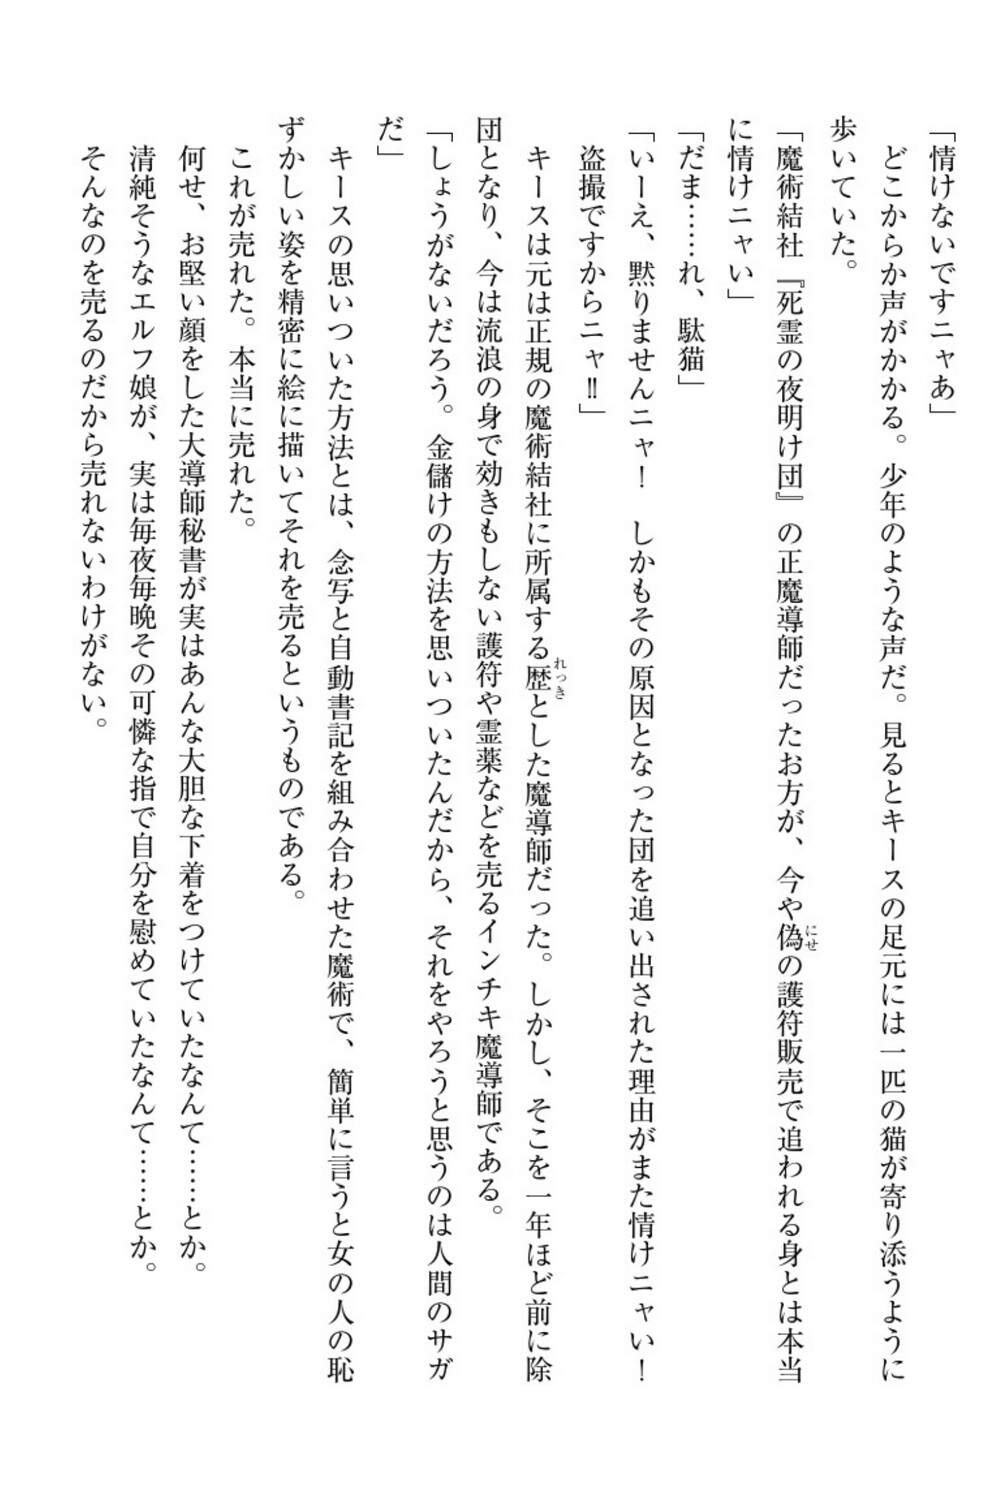 「情けないですニャあ」
どこからか声がかかる。少年のような声だ。見るとキースの足元には一匹の猫が寄り添うように
歩いていた。
「魔術結社『死霊の夜明け団』の正魔導師だったお方が、今や偽の護符販売で追われる身とは本当
に情けニャい」
「だま……れ、駄猫」
「いーえ、黙りませんニャ！　しかもその原因となった団を追い出された理由がまた情けニャい！
盗撮ですからニャ‼」
キースは元は正規の魔術結社に所属する歴とした魔導師だった。しかし、そこを一年ほど前に除
団となり、今は流浪の身で効きもしない護符や霊薬などを売るインチキ魔導師である。
「しょうがないだろう。金儲けの方法を思いついたんだから、それをやろうと思うのは人間のサガ
だ」
キースの思いついた方法とは、念写と自動書記を組み合わせた魔術で、簡単に言うと女の人の恥
ずかしい姿を精密に絵に描いてそれを売るというものである。
これが売れた。本当に売れた。
何せ、お堅い顔をした大導師秘書が実はあんな大胆な下着をつけていたなんて……とか。
清純そうなエルフ娘が、実は毎夜毎晩その可憐な指で自分を慰めていたなんて……とか。
そんなのを売るのだから売れないわけがない。